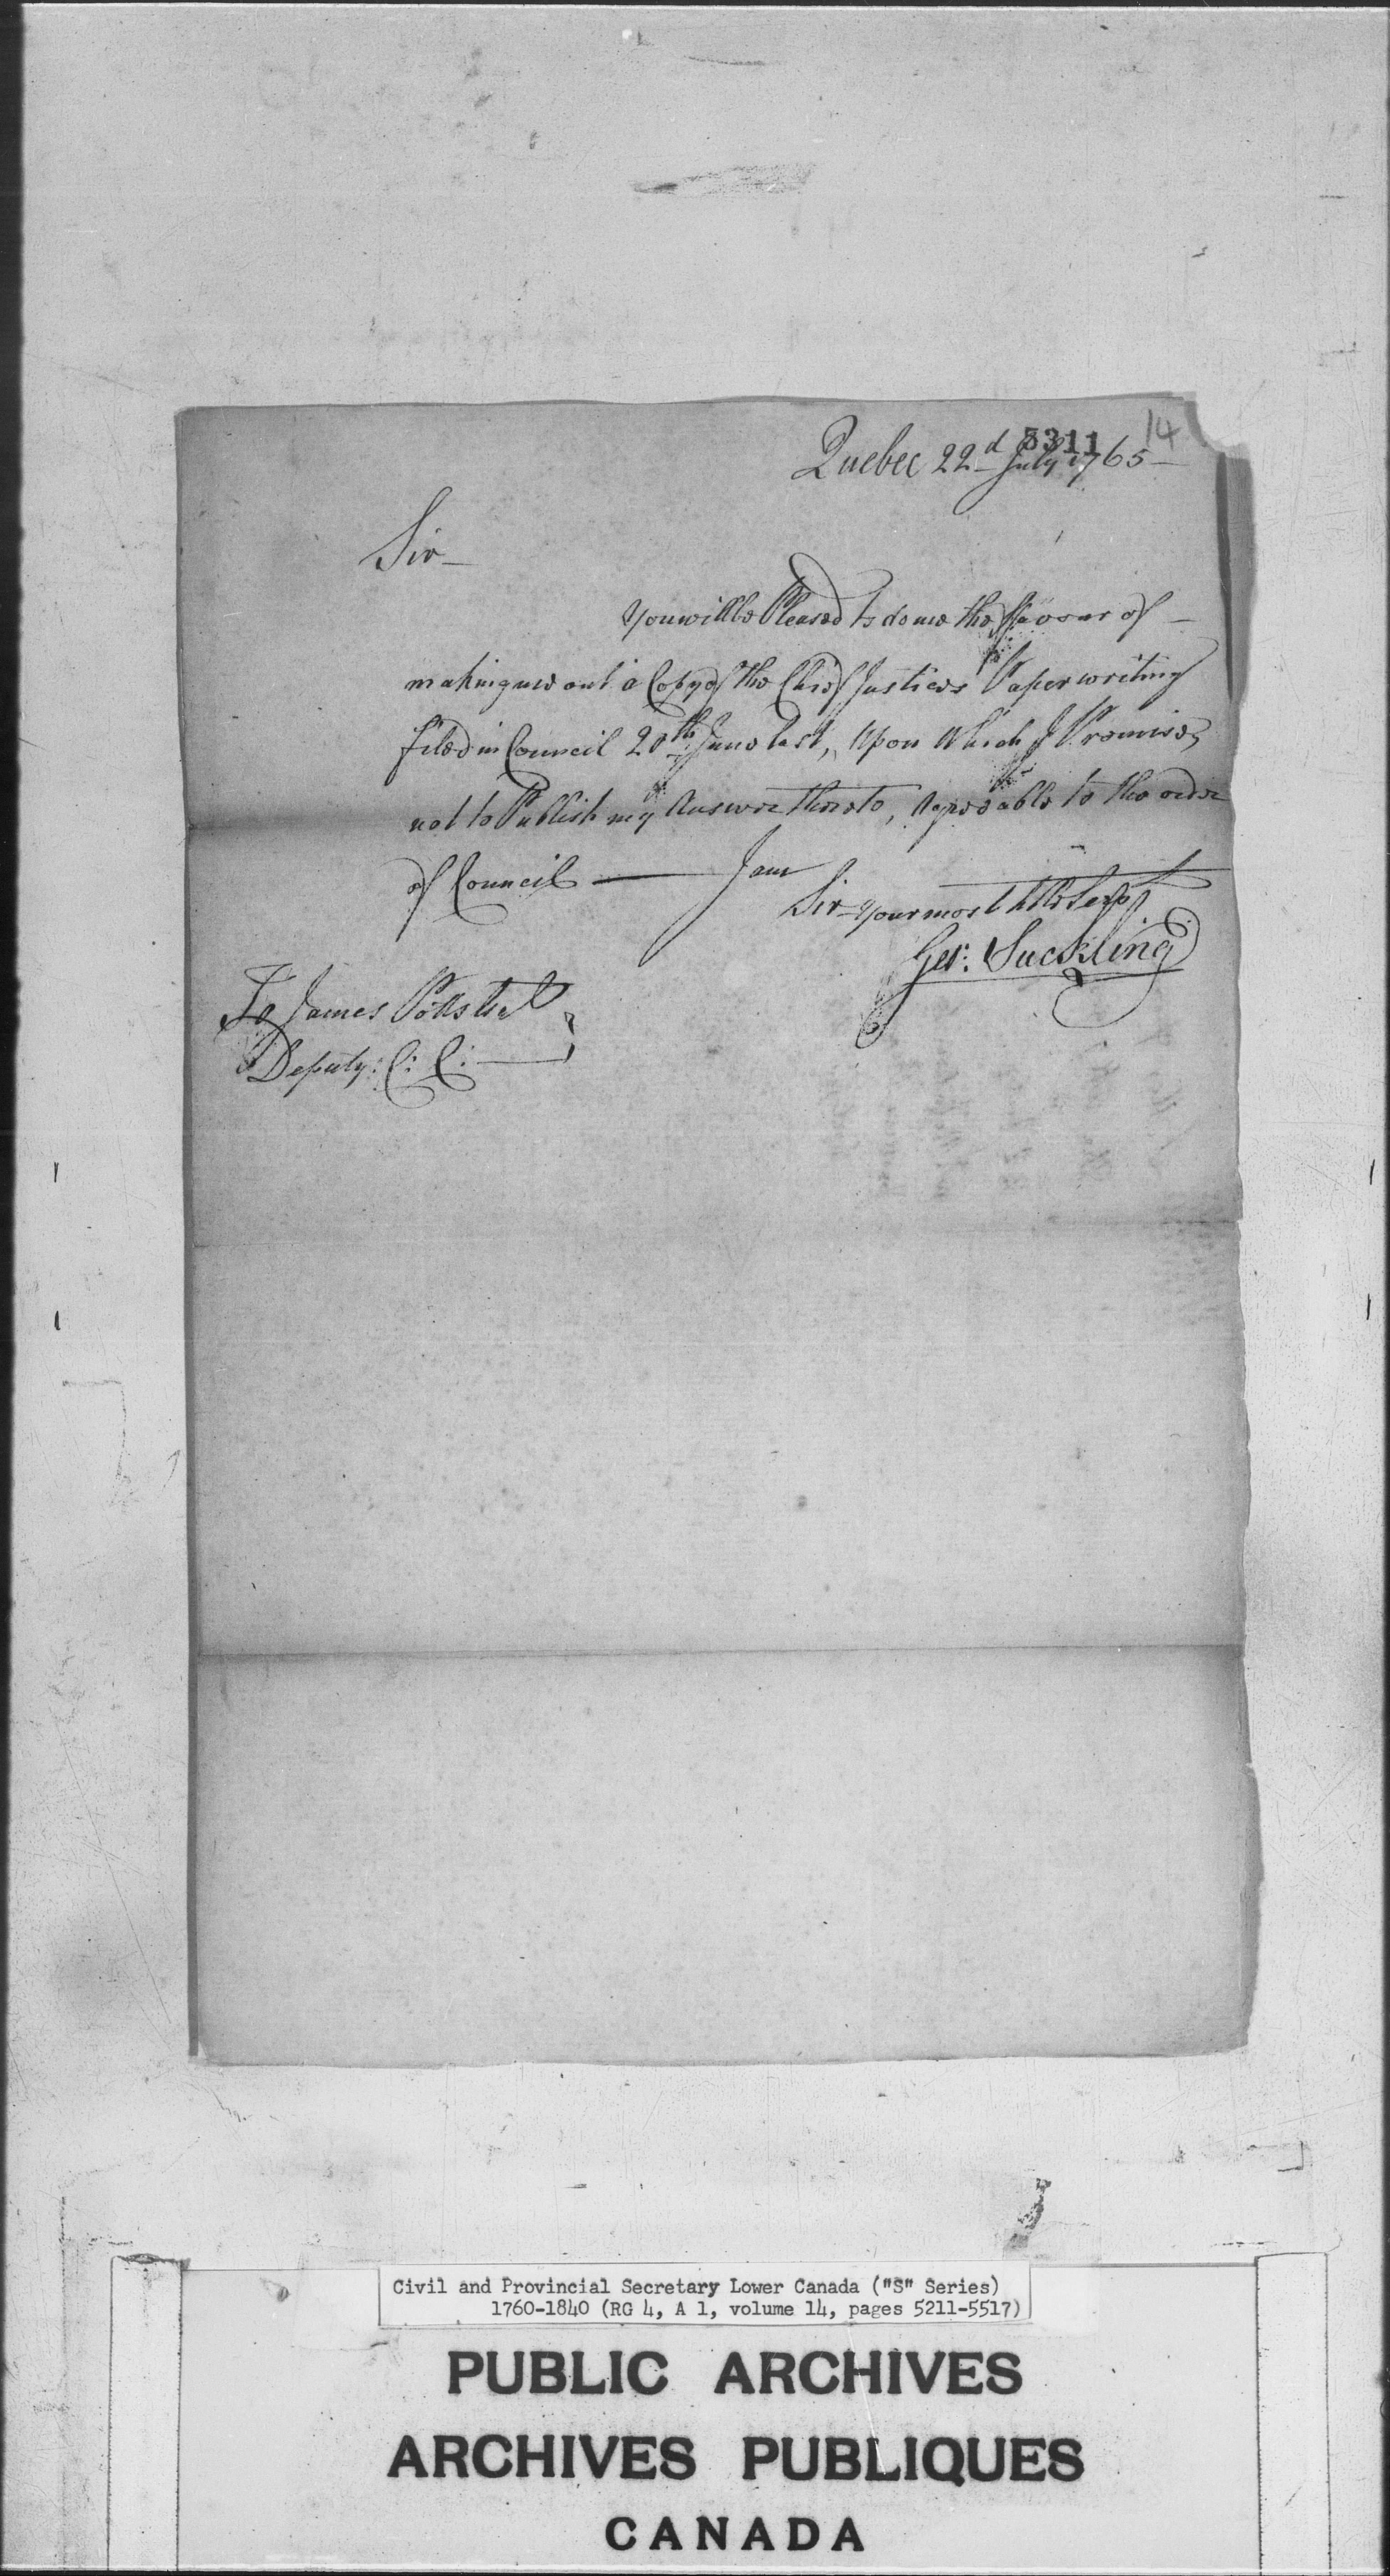 14
5311
Quebec 22d July 1765
Sir
You will be Pleased to do me the favour of
making me out a Copy of the Chief Justices Paper writing
filed in Council 20th June last, Upon Which I Promise,
not to Publish my Answer thereto, Agreeable to the order
of Council — I am
Sir your most hble Servt
Geo: Suckling
To James Potts
Deputy: C: C:
Civil and Provincial Secretary Lower Canada ("S" Series)
1760-1840 (RG 4, A 1, volume 14, pages 5211-5517)
PUBLIC ARCHIVES
ARCHIVES PUBLIQUES
CANADA